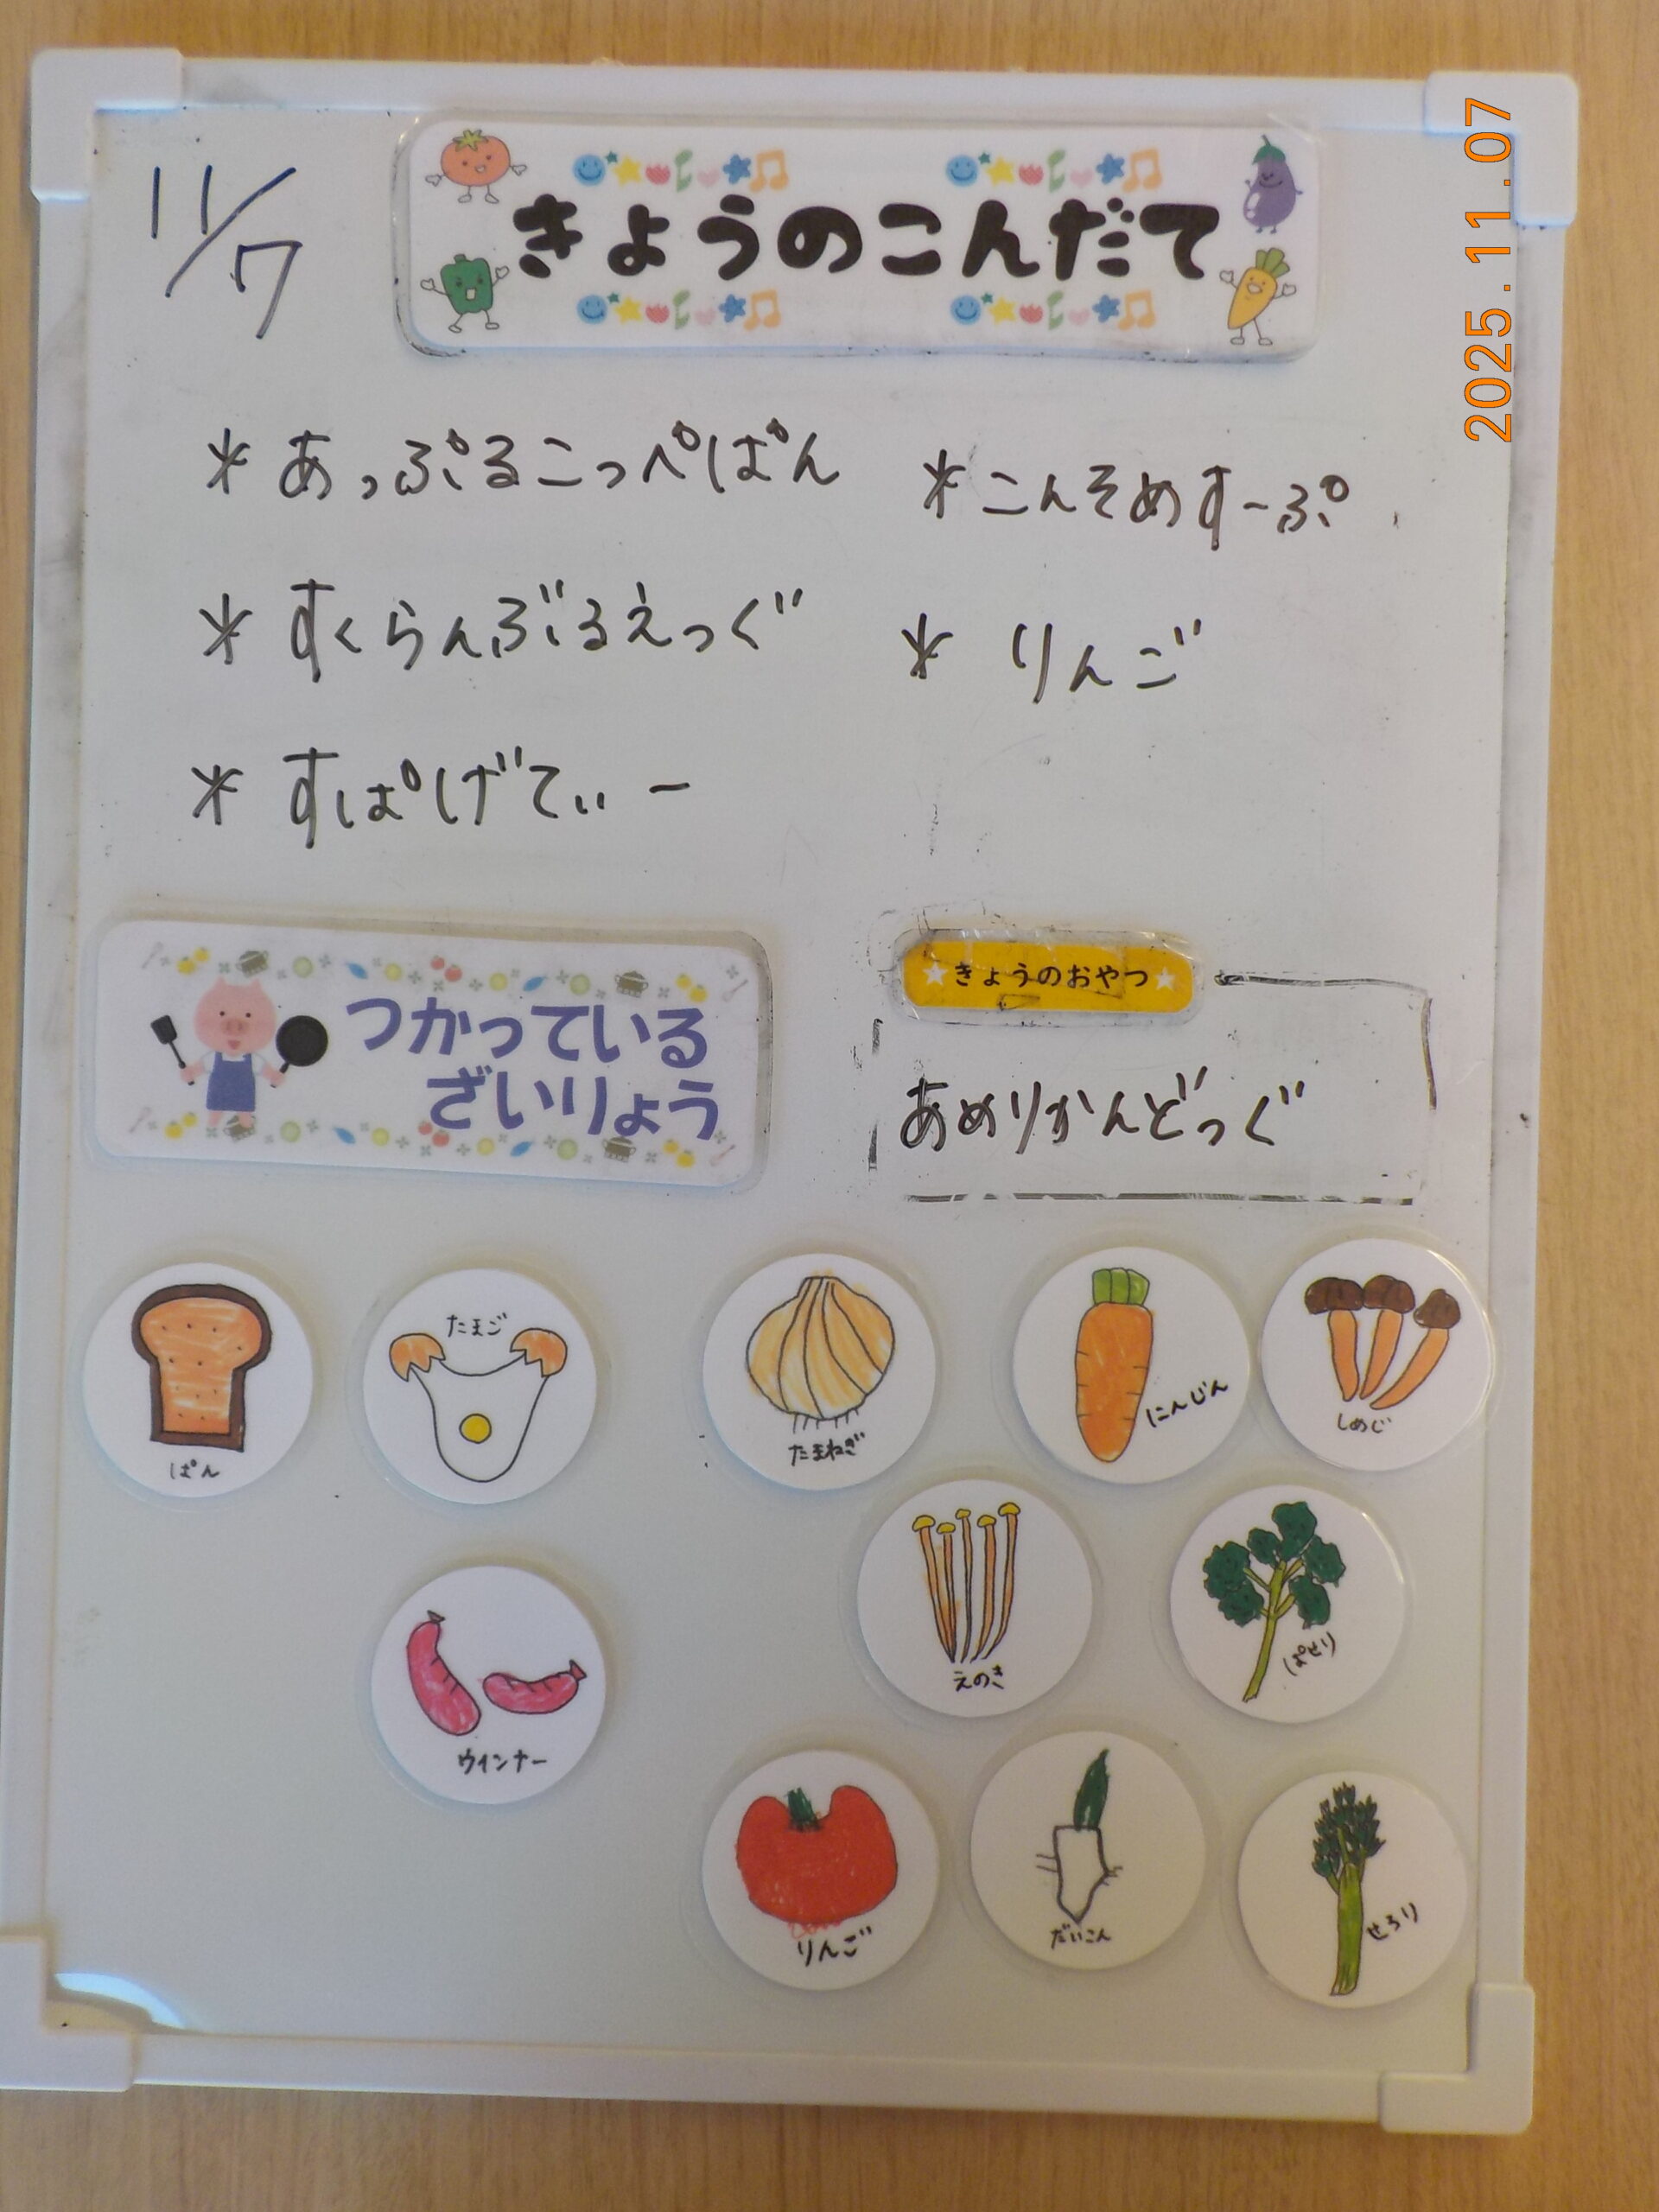 11/7
きょうのこんだて
2025.11.07
＊あっぷるこっぺぱん
＊すくらんぶるえっぐ
＊すぱげてぃー
＊こんそめすーぷ
＊りんご
つかっている
ざいりょう
きょうのおやつ
あめりかんどっぐ
ぱん
たまご
たまねぎ
にんじん
しめじ
ウインナー
えのき
ぱせり
りんご
だいこん
せろり